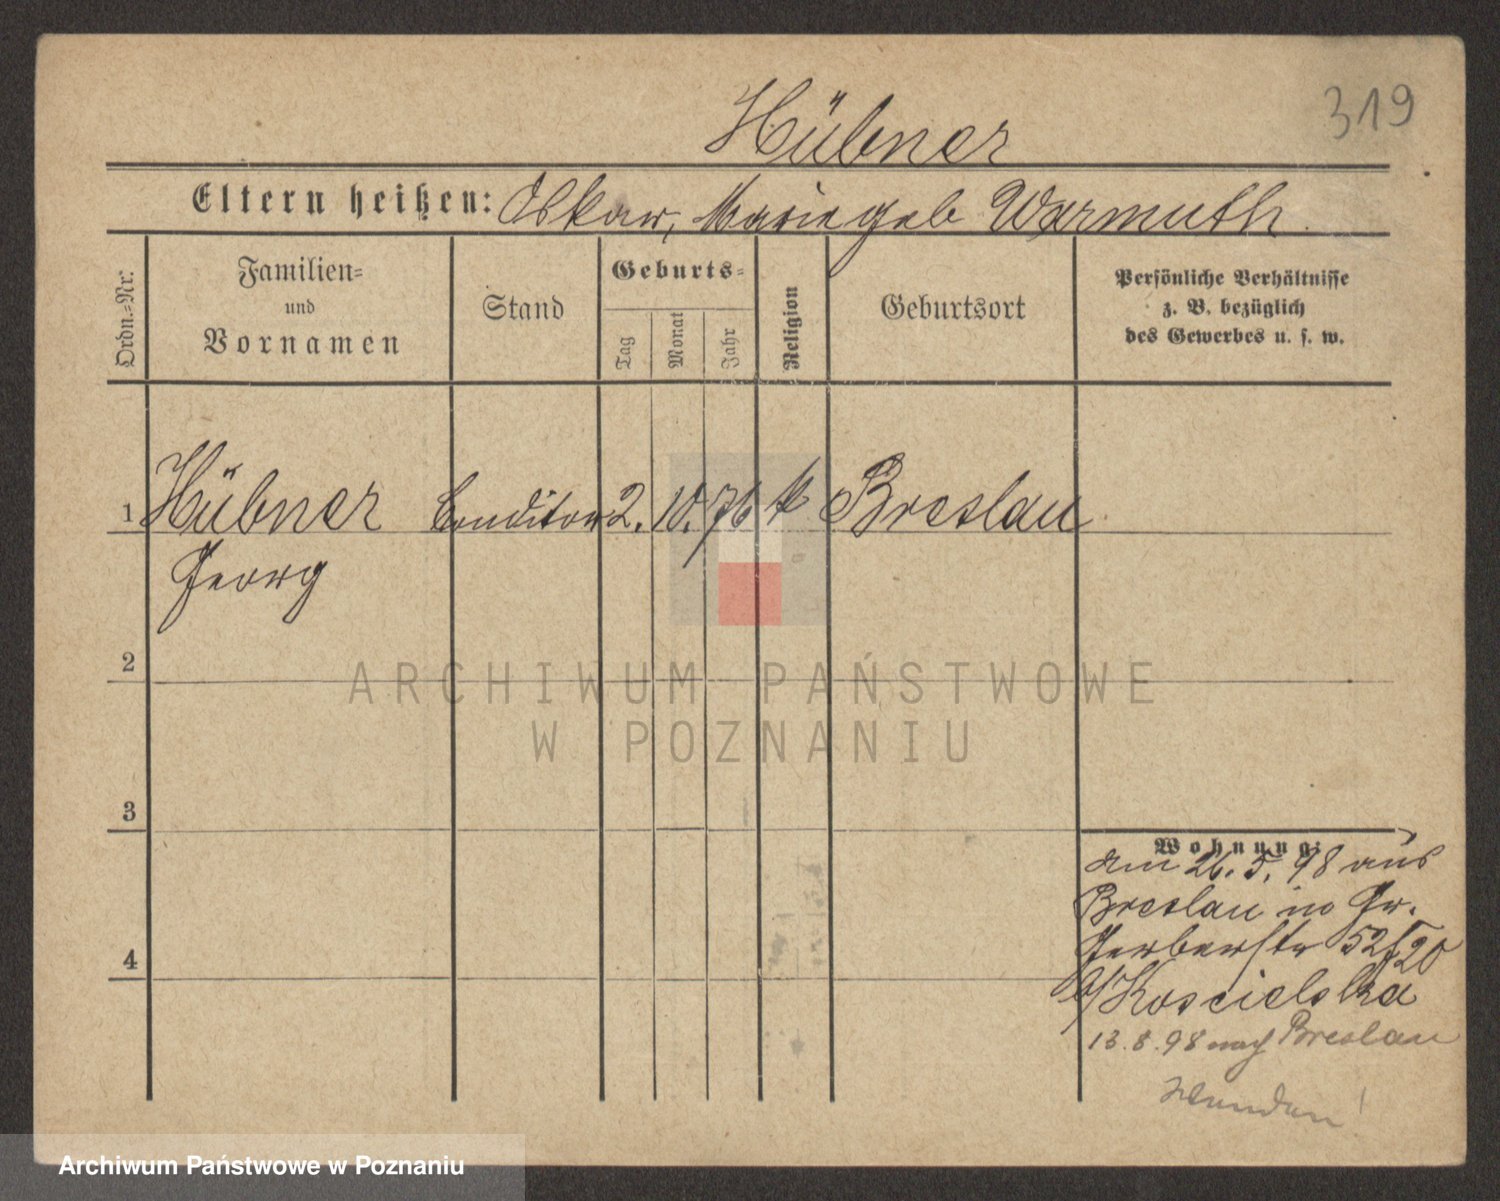 319
Hübner
Eltern heißen: Oskar, Marie geb Warmuth.
Ordn.=Nr.
Familien=
und
Vornamen
Stand
Geburts=
Tag
Monat
Jahr
Religion
Geburtsort
Persönliche Verhältnisse
z. B. bezüglich
des Gewerbes u. s. w.
1 Hübner Conditor 2. 10. 76 k Breslau
Georg
2
ARCHIWUM PAŃSTWOWE
W POZNANIU
3
Wohnung:
am 26. 5. 98 aus
Breslau in Gr.
Gerberstr 52 f 20
b/Koscielska
4
13. 8. 98 nach Breslau
Wenden!
Archiwum Państwowe w Poznaniu